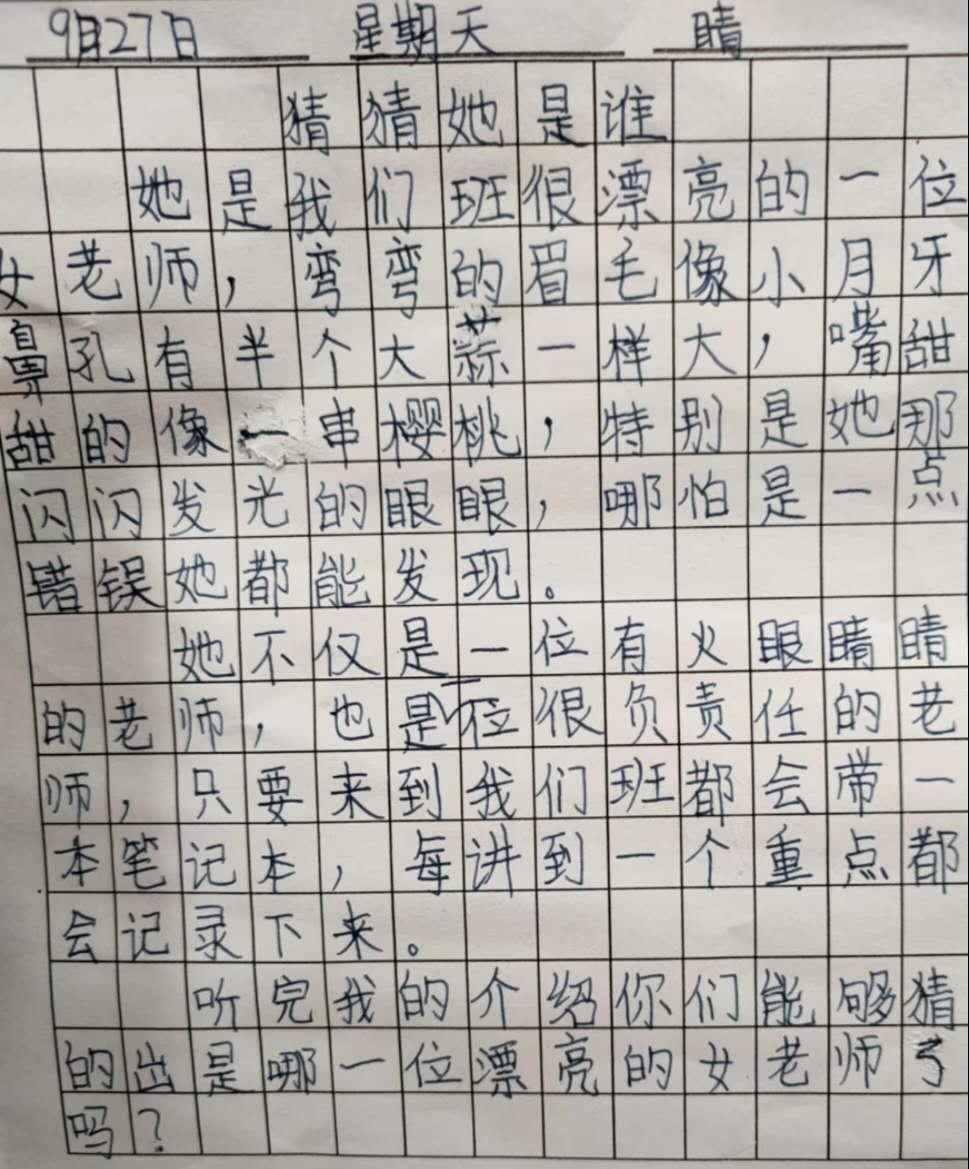 9月27日 星期天 晴
猜猜她是谁
她是我们班很漂亮的一位
女老师，弯弯的眉毛像小月牙
鼻孔有半个大蒜一样大，嘴甜
甜的像一串樱桃，特别是她那
闪闪发光的眼眼，哪怕是一点
错误她都能发现。
她不仅是一位有火眼睛睛
的老师，也是一位很负责任的老
师，只要来到我们班都会带一
本笔记本，每讲到一个重点都
会记录下来。
听完我的介绍你们能够猜
的出是哪一位漂亮的女老师了
吗？